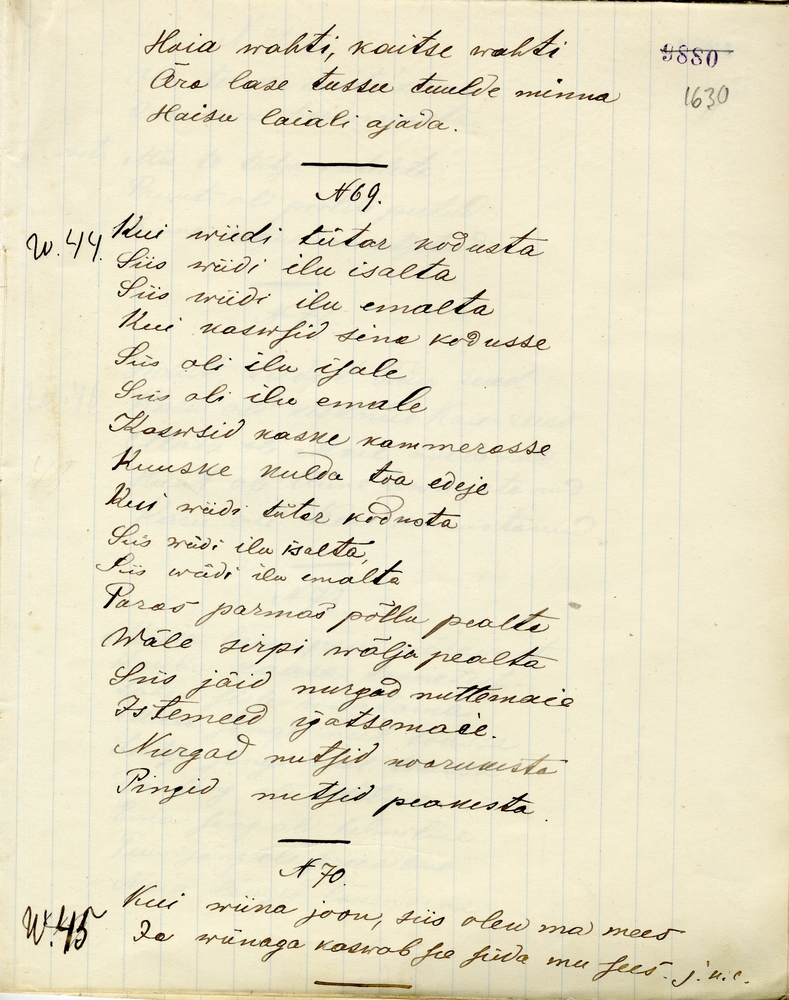 Hoia wahti, kaitse wahti
9880
Ära lase tussu tuulde minna
1630
Haisu laiali ajada.
N 69.
w. 44.
Kui wiidi tütar kodusta
Siis wiidi ilu isalta
Siis wiidi ilu emalta
Kui kaswsid sina kodusse
Siis oli ilu isale
Siis oli ilu emale
Kaswsid kaske kammerasse
Kuuske kulda toa edeje
Kui wiidi tütar kodusta
Siis wiidi ilu isalta,
Siis wiidi ilu emalta
Paras parmas põllu pealta
Wäle sirpi wälja pealta
Siis jäid nurgad nuttemaie
Istemeed igatsemaie.
Nurgad nutsid noorukesta
Pingid nutsid peakesta.
N 70.
W. 45
Kui wiina joon, siis olen ma mees
Ja wiinaga kaswab see süda mu sees. j.n.e.